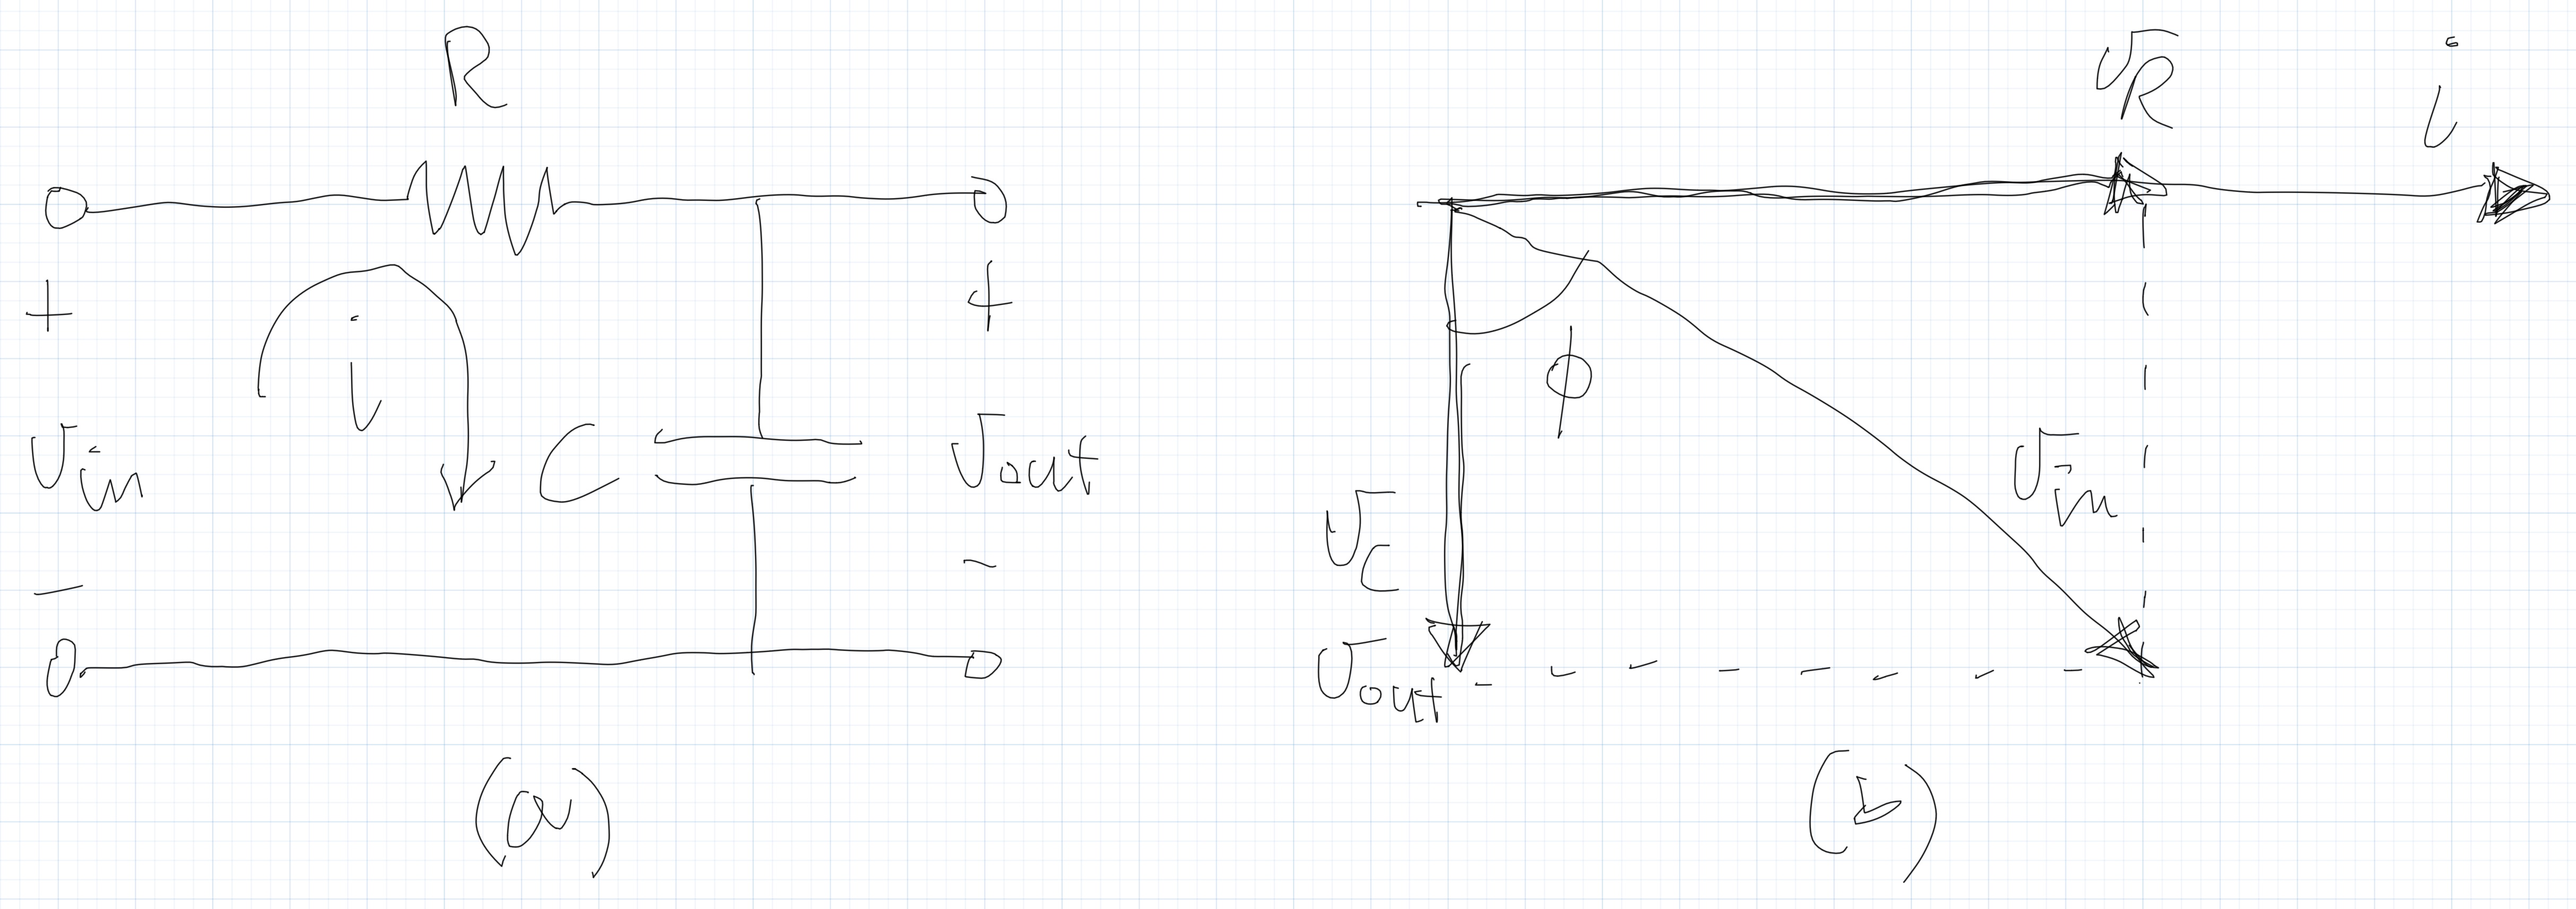 R
+
i
v_in
C
v_out
+
−
−
(a)
v_R
i
ϕ
v_in
v_C
v_out
(b)